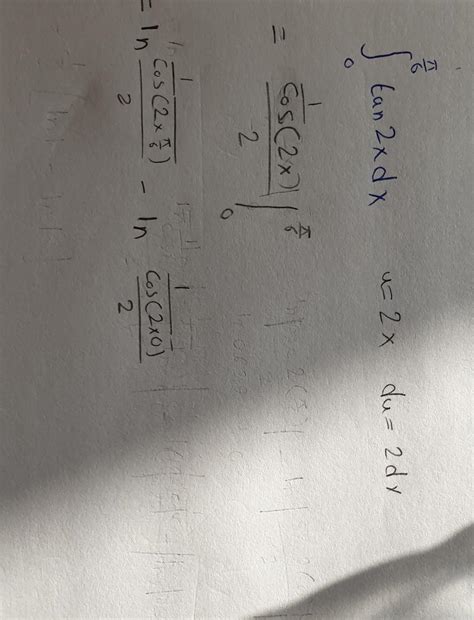 ∫₀^{π/6} tan 2x dx    u = 2x    du = 2dx
= \frac{\frac{1}{cos(2x)}}{2} |₀^{π/6}
= ln \frac{\frac{1}{cos(2×\frac{π}{6})}}{2} - ln \frac{\frac{1}{cos(2×0)}}{2}